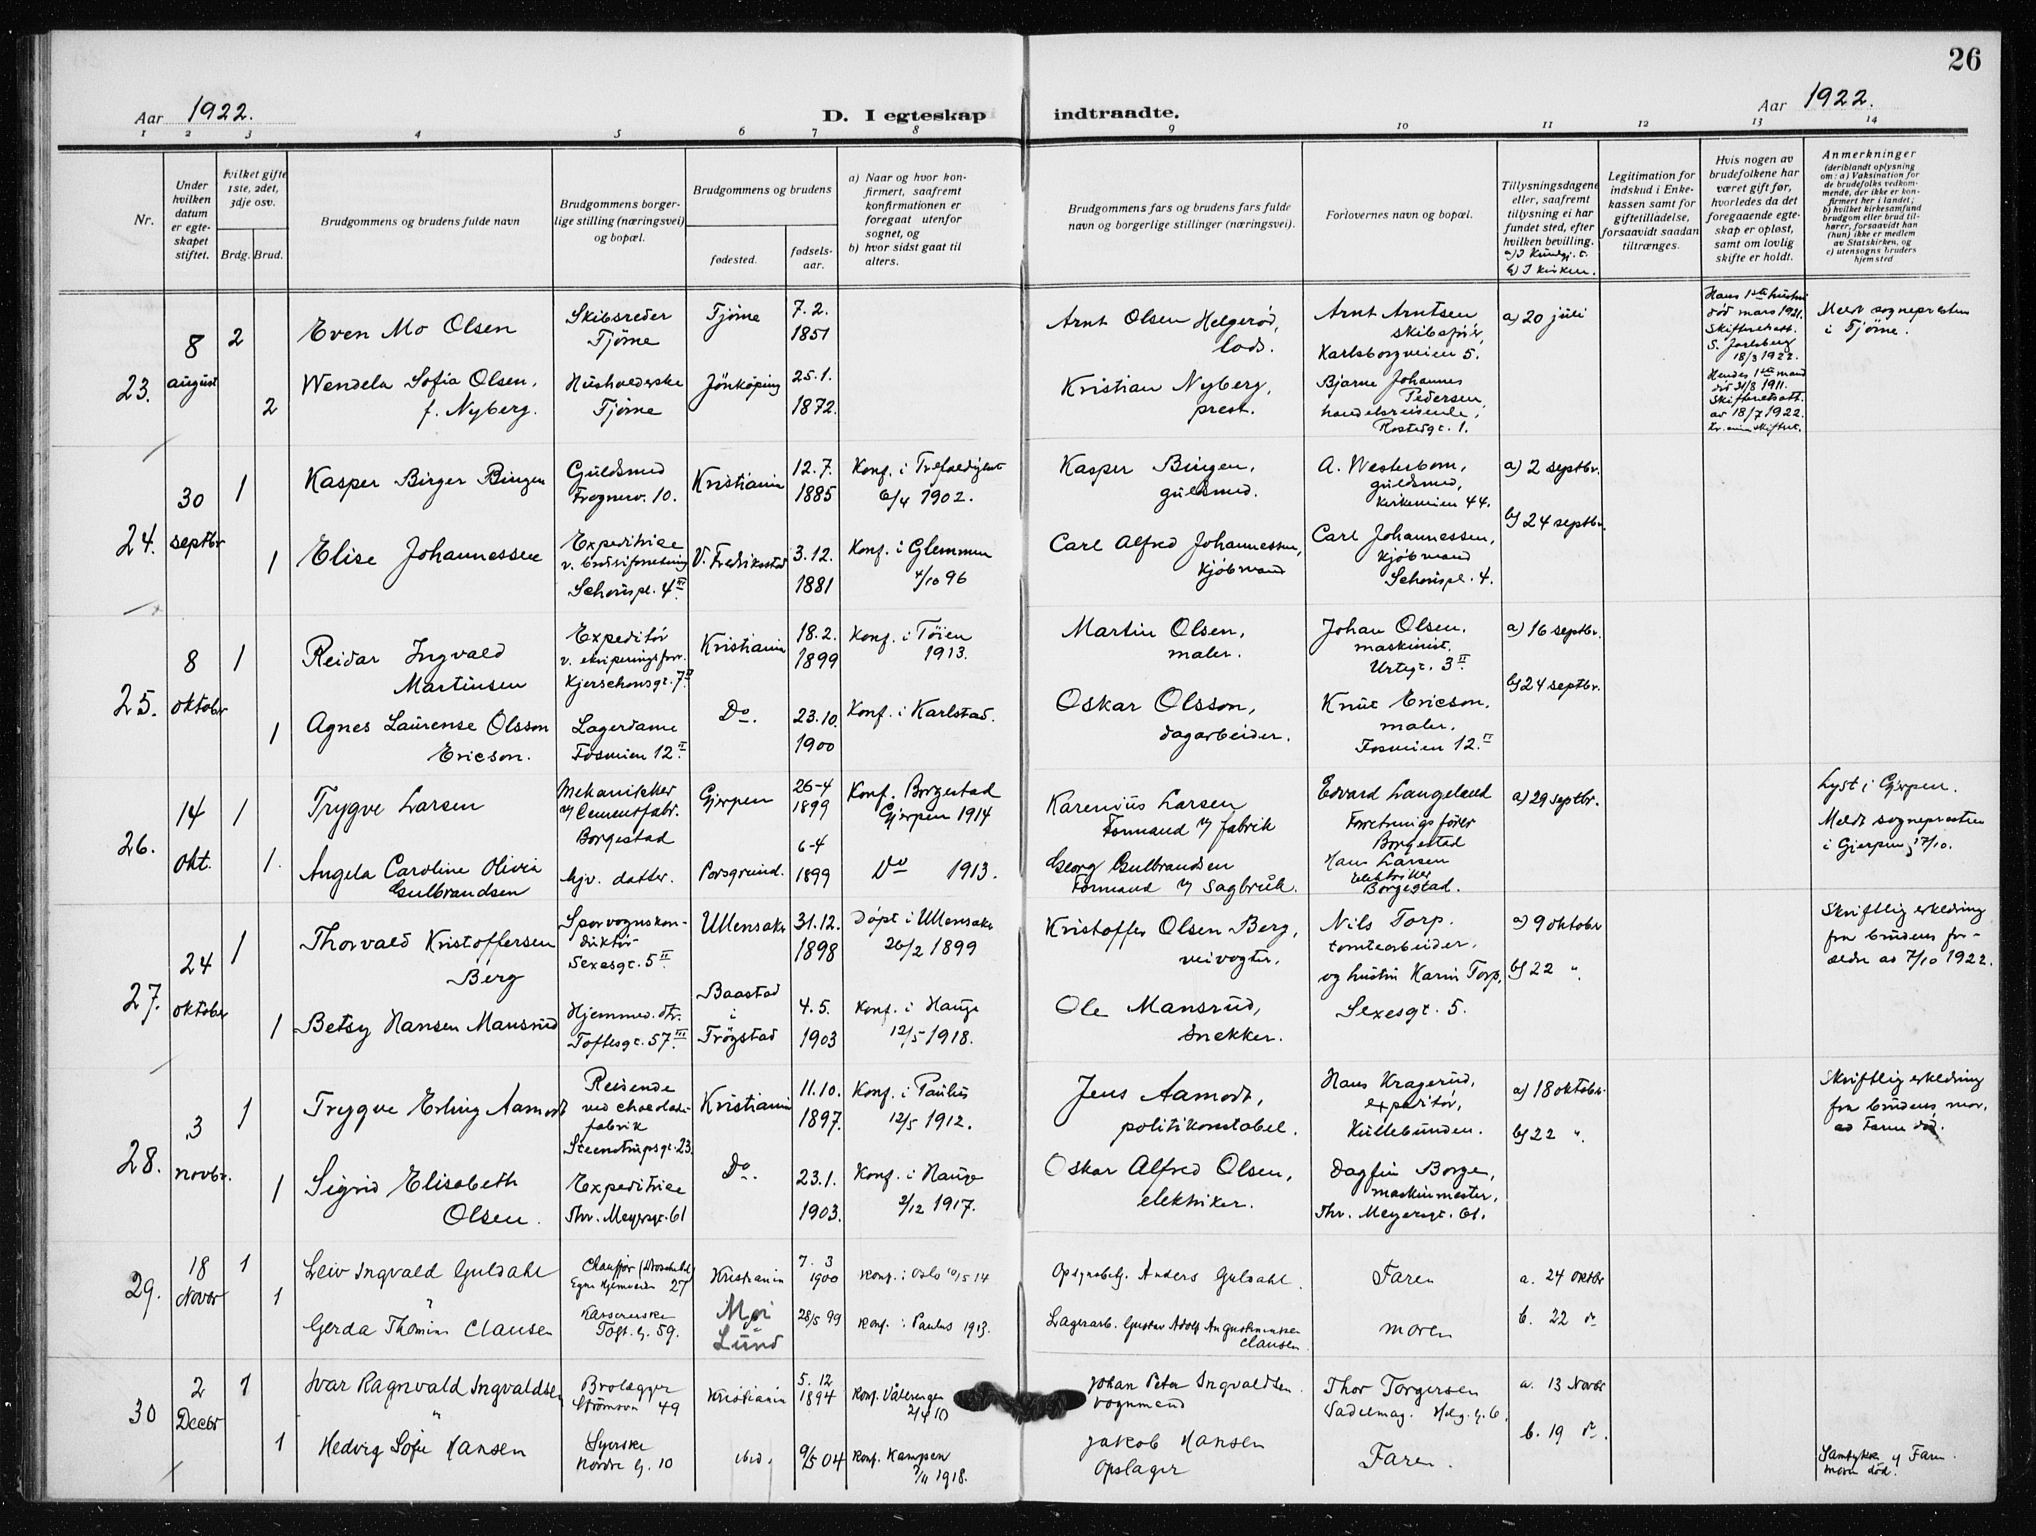 26
Aar 1922.
D. I egteskap indtraadte.
Aar 1922.
1 2 3 4 5 6 7 8 9 10 11 12 13 14
Nr.
Under
hvilken
datum
er egte-
skapet
stiftet.
Hvilket gifte
1ste, 2det,
3dje osv.
Brdg. Brud.
Brudgommens og brudens fulde navn
Brudgommens borger-
lige stilling (næringsvei)
og bopæl.
Brudgommens og brudens
fødested.
fødsels-
aar.
a) Naar og hvor kon-
firmert, saafremt
konfirmationen er
foregaat utenfor
sognet, og
b) hvor sidst gaat til
alters.
Brudgommens fars og brudens fars fulde
navn og borgerlige stillinger (næringsvei).
Forlovernes navn og bopæl.
Tillysningsdagene
eller, saafremt
tillysning ei har
fundet sted, efter
hvilken bevilling.
a) I Kundgj.t.
b) I kirken.
Legitimation for
indskud i Enke-
kassen samt for
giftetilladelse,
forsaavidt saadan
tiltrænges.
Hvis nogen av
brudefolkene har
været gift før,
hvorledes da det
foregaaende egte-
skap er opløst,
samt om lovlig
skifte er holdt.
Anmerkninger
(deriblandt oplysning
om: a) Vaksination for
de brudefolks vedkom-
mende, der ikke er kon-
firmert her i landet;
b) hvilket kirkesamfund
brudgom eller brud til-
hører, forsaavidt han
(hun) ikke er medlem
av Statskirken, og
c) utensogns bruders
hjemsted
23.
8
august
2
Even Mo Olsen
Skibsreder
Tjøme
Tjøme
7.2.
1851
Arnt Olsen Helgerød,
lods.
Arnt Arntsen
skibsfører,
Karlsborgveien 5.
a) 20 juli
Hans 1ste hustru
død mars 1921.
Skifteratt.
S. Jarlsberg
18/3 1922.
Meldt sognepresten
i Tjøme.
2
Wendela Sofia Olsen,
f. Nyberg.
Husholderske
Tjøme
Jönköping
25.1.
1872.
Kristian Nyberg,
prest.
Bjarne Johannes
Pedersen,
handelsreisende,
Rostedgt. 1.
Hendes 1ste mand
død 31/8 1911.
Skifteratt.
av 18/7 1922.
24.
30
septbr
1
Kasper Birger Bingen
Guldsmed
Frognerv. 10.
Kristiania
12.7.
1885
Konf. i Trefoldighet
6/4 1902.
Kasper Bingen,
guldsmed.
A. Westerbom,
guldsmed,
Kirkeveien 44.
a) 2 septbr.
b) 24 septbr.
1
Elise Johannessen
Expeditrice
v. brødforretning
Schouspl. 4 III.
V. Fredrikstad
3.12.
1881
Konf. i Glemmen
4/10 96
Carl Alfred Johannessen,
Kjøbmand
Carl Johannessen,
Kjøbmand
Schouspl. 4.
25.
8
oktober
1
Reidar Ingvald
Martinsen
Expeditør
v. ekviperingsforr.
Kjerschousgt. 7 II
Kristiania
18.2.
1899
Konf. i Tøien
1913.
Martin Olsen,
maler.
Johan Olsen,
maskinist,
Urtegt. 3 II.
a) 16 septbr.
b) 24 septbr.
1
Agnes Laurense Olsson
Ericson.
Lagerdame
Fosveien 12 II.
Do.
23.10.
1900
Konf. i Karlstad.
Oskar Olsson,
dagarbeider.
Knut Ericson,
maler,
Fosveien 12 II.
26.
14
okt.
1
Trygve Larsen
Mekaniker
v/ Cementfabr.
Borgestad
Gjerpen
26-4
1899
Konf. Borgestad
Gjerpen 1914
Karenius Larsen
Formand v/ fabrik
Edvard Langeland
Forretningsfører
Borgestad
a) 29 septbr.
Lyst i Gjerpen.
Meldt sognepresten
i Gjerpen 17/10.
1.
Angela Caroline Olivia
Gulbrandsen
hjv. datter.
Porsgrund.
6-4
1899
Do 1913.
Georg Gulbrandsen
Formand v/ Sagbruk.
Hans Larsen
Elektriker
Borgestad.
27.
24
oktober
1
Thorvald Kristoffersen
Berg
Sporvognskon-
duktør
Sexesgt. 5 II.
Ullensaker
31.12.
1898
Døpt i Ullensaker
26/2 1899
Kristoffer Olsen Berg,
veivogter,
Nils Torp.
tomtearbeider,
og hustru Karin Torp,
Sexesgt. 5.
a) 9 oktober
b) 22 ".
Skriftlig erklæring
fra brudens for-
ældre av 7/10 1922.
1
Betsy Hansen Mansrud
Hjemmev. dtr.
Toftesgt. 57 III.
Baastad
i
Trøgstad
4.5.
1903
Konf. i Hauge
12/5 1918.
Ole Mansrud,
snekker.
28.
3
novbr.
1
Trygve Erling Aamodt
Reisende
ved chocolade-
fabrik
Steenstrupsgt. 23.
Kristiania
11.10.
1897.
Konf. i Paulus
12/5 1912.
Jens Aamodt,
politikonstabel.
Hans Kragerud,
expeditør,
Kullebunden.
a) 18 oktober
b) 22 ".
Skriftlig erklæring
fra brudens mor,
da Faren død.
1
Sigrid Elisabeth
Olsen.
Expeditrice
Thv. Meyersgt. 61
Do.
23.1.
1903.
Konf. i Hauge
2/12 1917.
Oskar Alfred Olsen,
elektriker.
Dagfin Borge,
maskinmester,
Thv. Meyersgt. 61.
29.
18
Novbr
1
Leiv Ingvald Guldahl
Chauffør (Droschebil)
Egne Hjemveien 27
Kristiania
7. 3
1900
Konf. i Oslo 10/5 14
Opsynsbetj. Anders Guldahl.
Faren
a. 24 oktbr
b. 22 do
1
Gerda Thomine Clausen
Kassererske
Toft. g. 59.
Moi
Lund
28/5 99
Konf. i Paulus 1913.
Lagerarb. Gustav Adolf Augustinussen
Clausen
moren
30
2
Decbr
1
Ivar Ragnvald Ingvaldsen
Brolægger
Strømsvn 49
Kristiania
5. 12
1894
Konf. Vålerengen
2/4 10
Johan Peter Ingvaldsen.
vognmand
Thor Torgersen
Sadelmag. Helg. g. 6.
a. 13 Novbr
b. 19 do.
1
Hedvig Sofie Hansen
Syerske
Nordre g. 10
ibid.
9/5 04
Konf. Kampen
3/11 1918.
Jakob Hansen
Opslager
Faren.
Samtykke af Faren.
moren død.